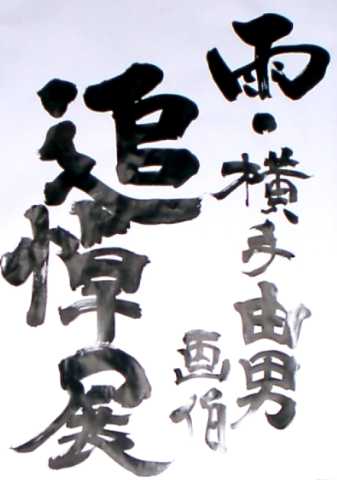 雨・横手由男
画伯
追悼展